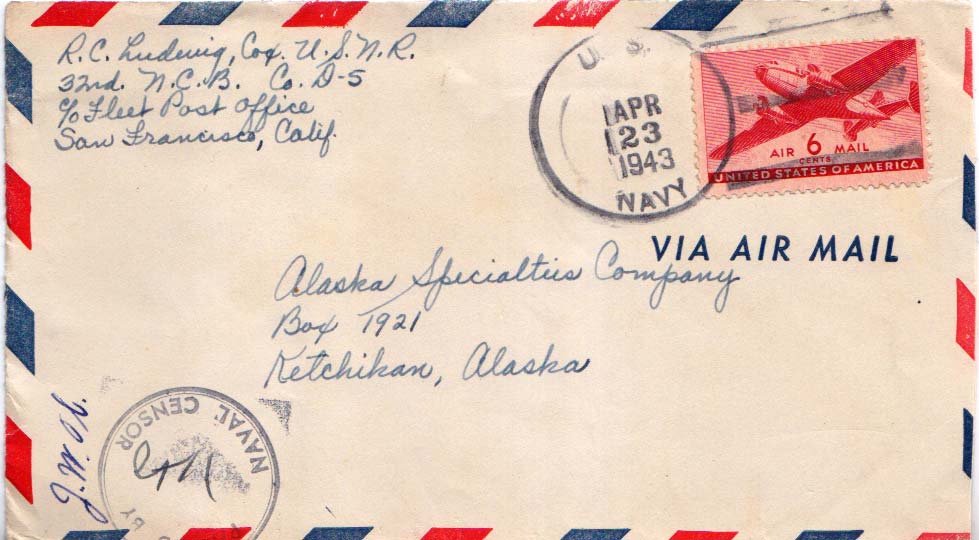 R. C. Ludewig, Cox. U. S. N. R.
32nd. N. C. B. Co. D-5
c/o Fleet Post Office
San Francisco, Calif.
U. S.
APR
23
1943
NAVY
AIR 6 MAIL
CENTS
UNITED STATES OF AMERICA
VIA AIR MAIL
Alaska Specialties Company
Box 1921
Ketchikan, Alaska
NAVAL CENSOR
BY